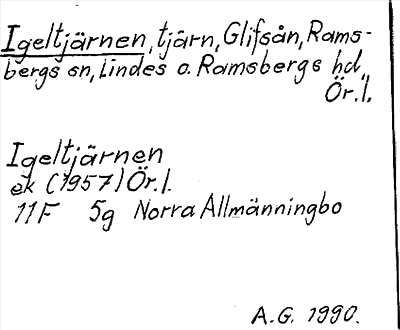 Igeltjärnen, tjärn, Glifsån, Rams-
bergs sn, Lindes o. Ramsbergs hd,
Ör.l.
Igeltjärnen
ek (1957) Ör.l.
11F 5g Norra Allmänningbo
A.G. 1990.